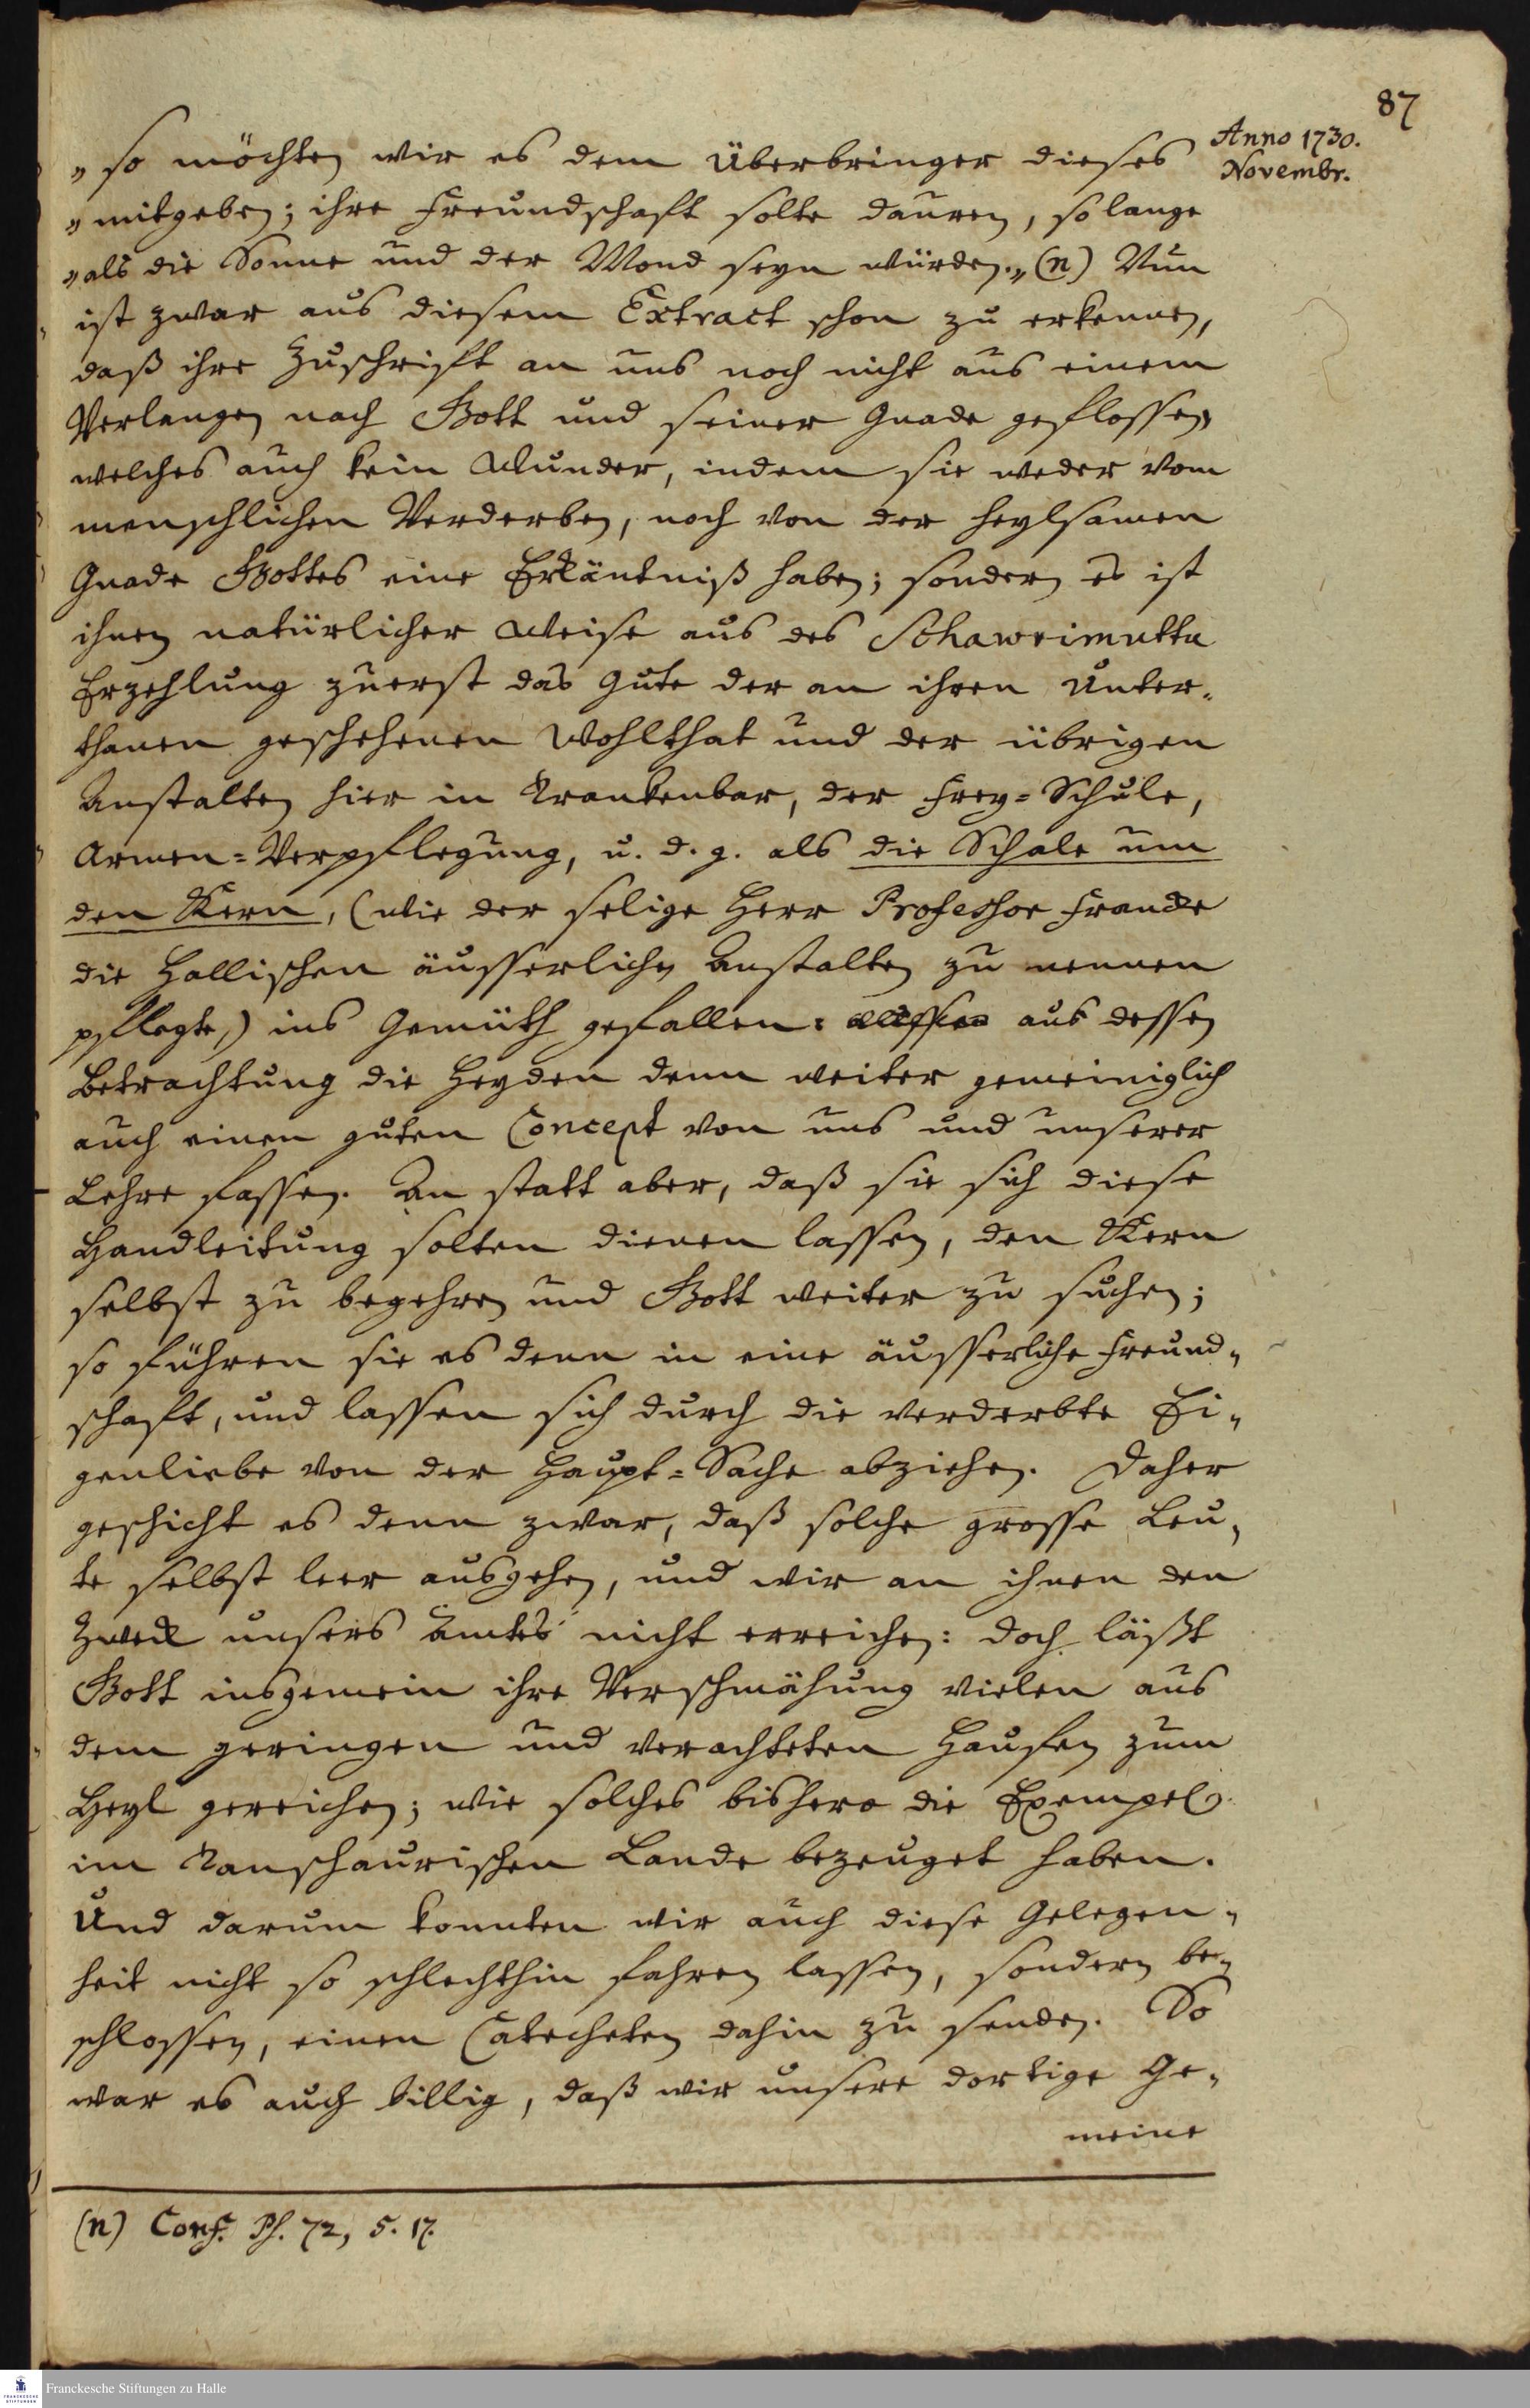 87
Anno 1730.
Novembr.
„so möchten wir es dem Überbringer dieses
„mitgeben; ihre Freundschaft solte dauren, so lange
„als die Sonne und der Mond seyn würden.„ (n) Nun
ist zwar aus diesem Extract schon zu erkennen,
daß ihre Zuschrift an uns noch nicht aus einem
Verlangen nach Gott und seiner Gnade geflossen,
welches auch kein Wunder, indem sie weder vom
menschlichen Verderben, noch von der heylsamen
Gnade Gottes eine Erkäntniß haben; sondern es ist
ihnen natürlicher Weise aus des Schawrimuttu
Erzehlung zuerst das Gute der an ihren Unter-
thanen geschehenen Wohlthat und der übrigen
Anstalten hier in Trankenbar, der Frey-Schule,
Armen-Verpflegung, u. d. g. als die Schale um
den Kern, (wie der selige Herr Professor Francke
die Hallischen äusserlichen Anstalten zu nennen
pflegte,) ins Gemüth gefallen: aus dessen
Betrachtung die Heyden denn weiter gemeiniglich
auch einen guten Concept von uns und unserer
Lehre fassen. An statt aber, daß sie sich diese
Handleitung solten dienen lassen, den Kern
selbst zu begehren und Gott weiter zu suchen;
so führen sie es denn in eine äusserliche Freund-
schaft, und lassen sich durch die verderbte Ei-
genliebe von der Haupt-Sache abziehen. Daher
geschicht es denn zwar, daß solche grosse Leu-
te selbst leer ausgehen, und wir an ihnen den
Zweck unsers Amtes nicht erreichen: doch läßt
Gott insgemein ihre Verschmähung vielen aus
dem geringen und verachteten Haufen zum
Heyl gereichen; wie solches bishero die Exempel
im Tanschaurischen Lande bezeuget haben.
Und darum konnten wir auch diese Gelegen-
heit nicht so schlechthin fahren lassen, sondern be-
schlossen, einen Catecheten dahin zu senden. So
war es auch billig, daß wir unsere dortige Ge-
meine
(n) Conf. Ps. 72, 5. 17.
Franckesche Stiftungen zu Halle
FRANCKESCHE
STIFTUNGEN